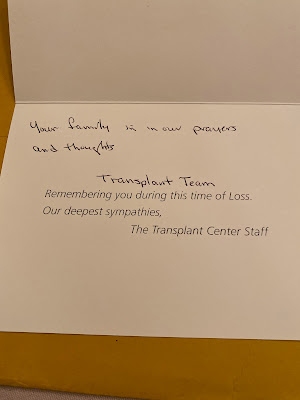 Your family is in our prayers
and thoughts
Transplant Team
Remembering you during this time of Loss.
Our deepest sympathies,
The Transplant Center Staff